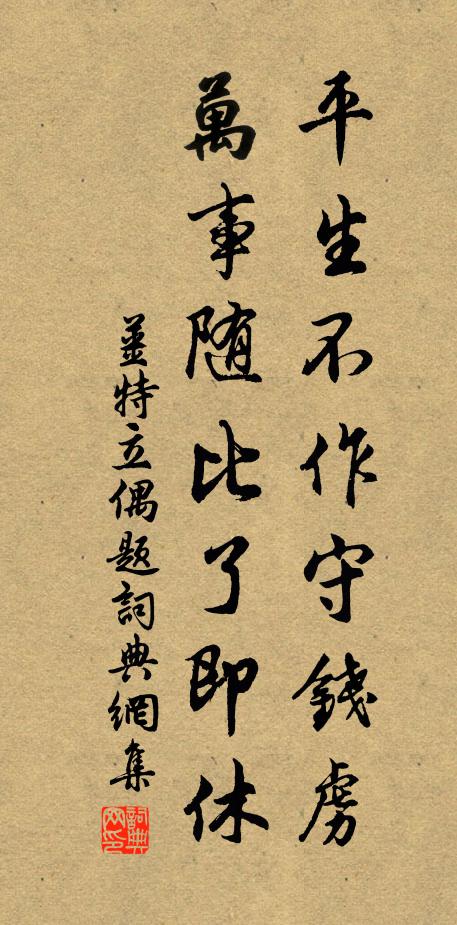 平生不作守錢虜
萬事随比了即休
姜特立偶題詞典網集
詞典網印